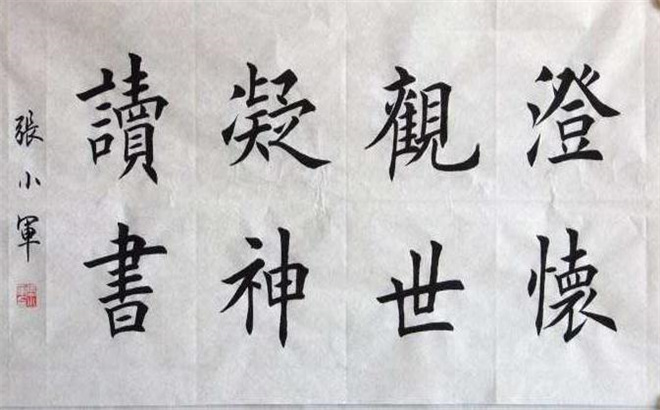 澄懷
觀世
凝神
讀書
張小軍